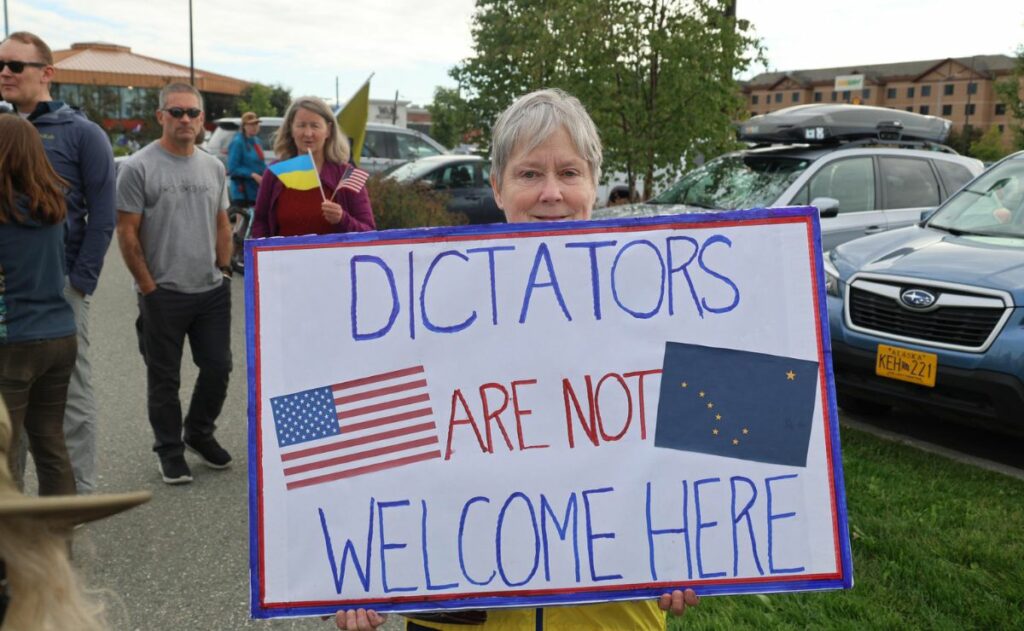 DICTATORS
ARE NOT
WELCOME HERE
ALASKA
KEH 221